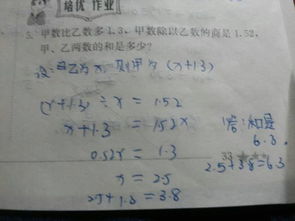 培优 作业
5. 甲数比乙数多1.3,甲数除以乙数的商是1.52,
甲、乙两数的和是多少?
设:乙为x,则甲为(x+1.3)
(x+1.3)÷x=1.52
x+1.3=1.52x
0.52x=1.3
x=2.5
2.5+1.3=3.8
2.5+3.8=6.3
答:和是
6.3.